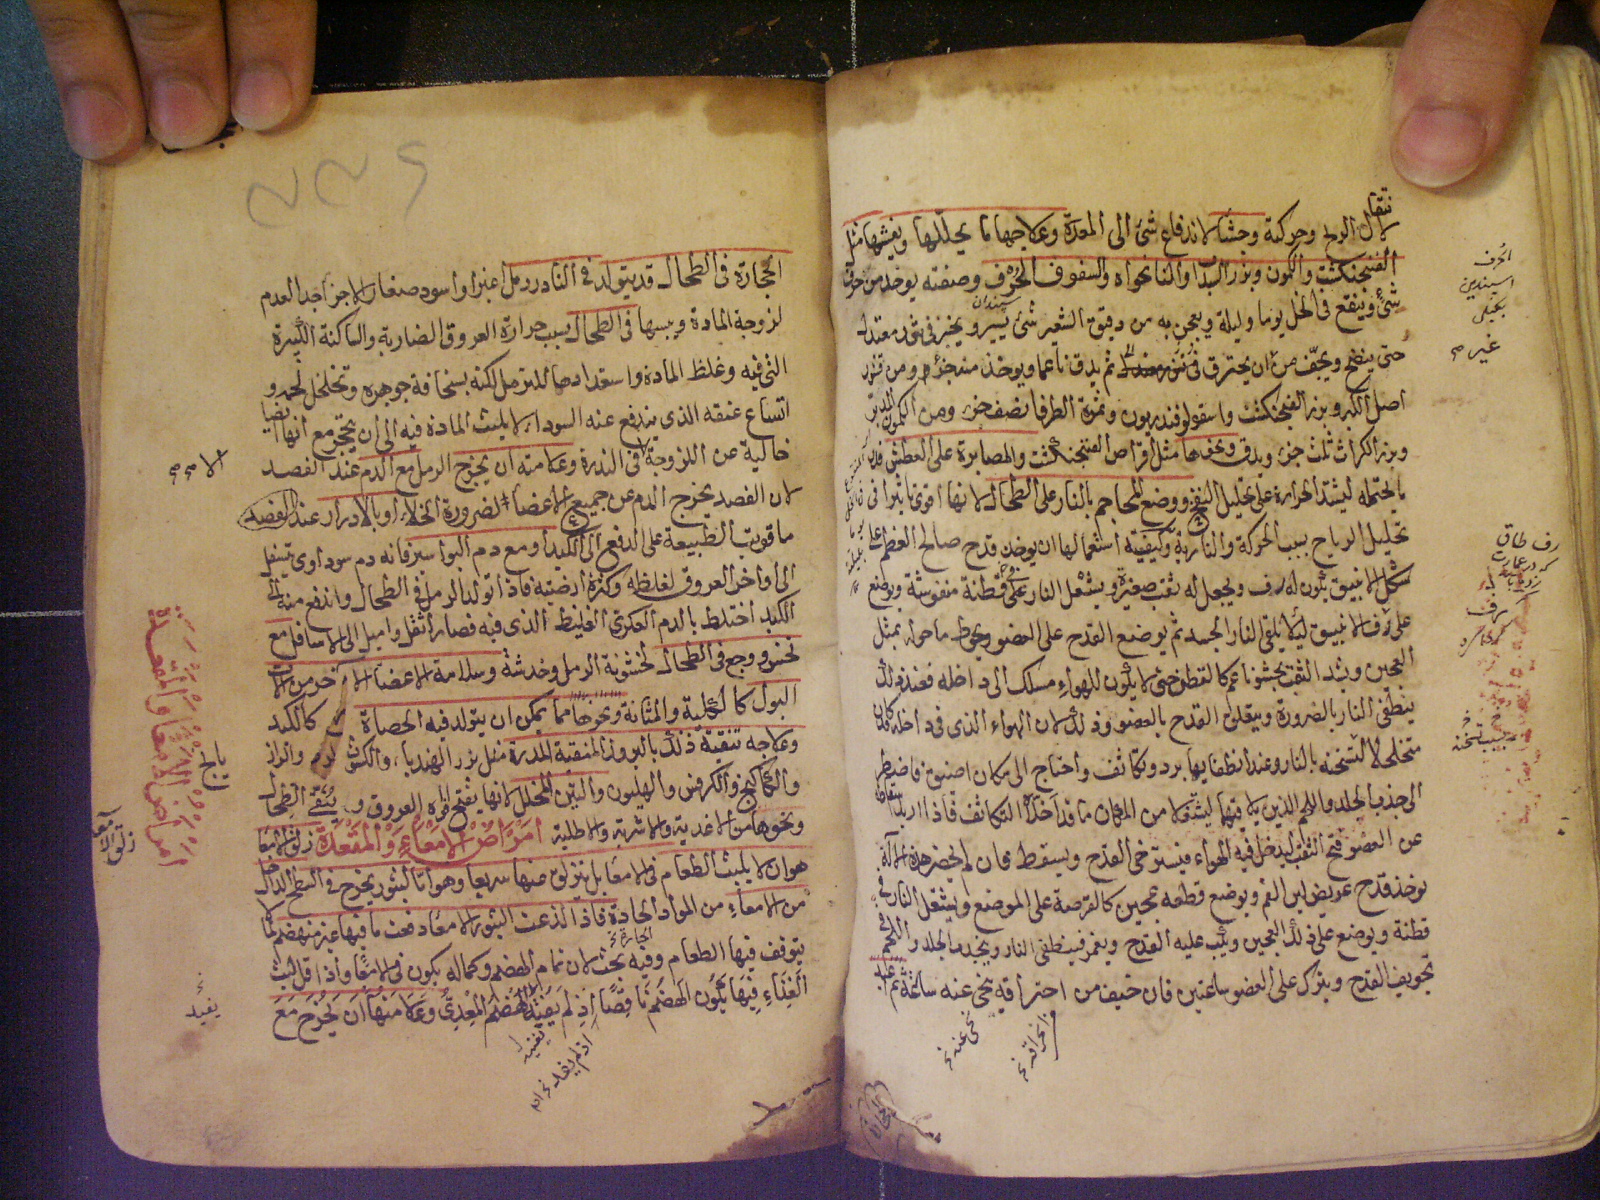 لانتقال الريح وحركته وجشاء لاندفاع شئ الى المعدة وعلاجها ما يحللها ويفشيها مثل
الفنجنكشت والكمون وبزر السداب والنانخواه والسفوف الحرف وصفته يوخذ من حرف
شئ وينقع فى الخل يوما وليلة ويعجن به من دقيق الشعير شئ يسير ويخبز فى تنور معتدل
حتى ينضج ويجفف من ان يحترق فى تنور ثم يدق ناعما ويوخذ منه جزؤ ومن قشور
اصل الكبر وبزر الفنجنكشت واسقولوفندريون وثمرة الطرفا نصف جزء ومن الكمون
وبزر الكراث ثلث جزء ويدق ونحوها مثل اقراص الفنجنكشت والمصابرة على العطش
ما يحتمله ليشتد الحرارة على تحليل النفخ ووضع المحاجم بالنار على الطحال لانها اقوى تاثيرا فى
تحليل الرياح بسبب الحركة والنارية وكيفية استعمالها ان يوخذ قدح صالح العظم على
شكل الانبيق يكون له رف ويجعل له ثقب صغير ويشعل النار على قطنة منفوشة ويوضع
على رف الانبيق ليلا يلقى النار الجسد ثم يوضع القدح على العضو ويحوط ما حوله بمثل
العجين ويشد الثقب بحشو ناعم كالقطن حتى لا يكون للهواء مسلك الى داخله فعند ذلك
ينطفى النار بالضرورة ويتعلق القدح بالعضو وذلك لان الهواء الذى فى داخله كان
متخلخلا لتسخنه بالنار وعند انطفايها برد وتكاثف واحتاج الى مكان اضيق فاضطر
الى جذب الجلد واللحم الذين يليانها ليشغلا من المكان ما قد اخلاه التكاثف فاذا اريد اسقاطها
عن العضو فتح الثقب ليدخل فيه الهواء فيسترخى القدح ويسقط فان لم يحضر هذه الآلة
يوخذ قدح عريض لين الفم ويوضع قطعه عجين كالقرصة على الموضع ويشعل النار فى
قطنة ويوضع على ذلك العجين ويكب عليه القدح ويغمر فينطفى النار وينجذب الجلد واللحم فى
تجويف القدح ويترك على العضو ساعتين فان خيف من احتراقه نحى عنه ساعة ثم اعيد
نحى عنه
الحرف
اسبندين
غير
رف طاق
الحجارة فى الطحال قد يتولد فى النادر رمل اغبر او اسود صغار الاجزاء جدا لعدم
لزوجة المادة ويبسها فى الطحال بسبب حرارة العروق الضاربة والساكنة الكثيرة
التى فيه وغلظ المادة واستعدادها للترمل لكنه بسخافة جوهره وتخلخل لحمه و
اتساع عنقه الذى يندفع عنه السوداء لا يلبث المادة فيه الى ان يتحجر مع انها ايضا
خالية عن اللزوجة الا فى الندرة وعلامته ان يخرج الرمل مع الدم عند الفصد
لان الفصد يخرج الدم عن جميع الاعضاء لضرورة الخلاء او بالادرار عند الفصد
ما قويت الطبيعة على الدفع الى الكبد او مع دم البواسير فانه دم سوداوى يتسفل
الى اواخر العروق لغلظه وكثرة ارضيته فاذا تولد الرمل فى الطحال واندفع منه الى
الكبد اختلط بالدم العكرى الغليظ الذى فيه فصار اثقل واميل الى الاسافل مع
نخس ووجع فى الطحال لخشونة الرمل وخدشه وسلامة الاعضاء الاخر من الات
البول كالكلية والمثانة ونحوها مما يمكن ان يتولد فيه الحصاة كالكبد
وعلاجه تنقية ذلك بالبزور المنقية المدرة مثل بزر الهندباء والكشوث والراز
والكاكنج والكرفس والهليون والتين المخلل لانها يفتح افواه العروق و ينقى الطحال
ونحوها من الاغدية والاشربة والاطلية امراض الامعاء والمقعدة زلق الامعا
هو ان لا يلبث الطعام فى الامعا بل ينزلق منها سريعا وهو اما لبثور يخرج فى السطح الداخل
من الامعاء من المواد الحادة فاذا لذعت البثور الامعا دفعت ما فيها غير منهضم كما
يتوقف فيها الطعام وفيه بحث لان تمام الهضم وكماله يكون فى الامعا واذا قل لبث
الغذاء فيها يكون الهضم ناقصا اذ لم يغنه الهضم المعدى وعلامتها ان يخرج مع
امراض الامعاء والمقعدة
زلق الامعا